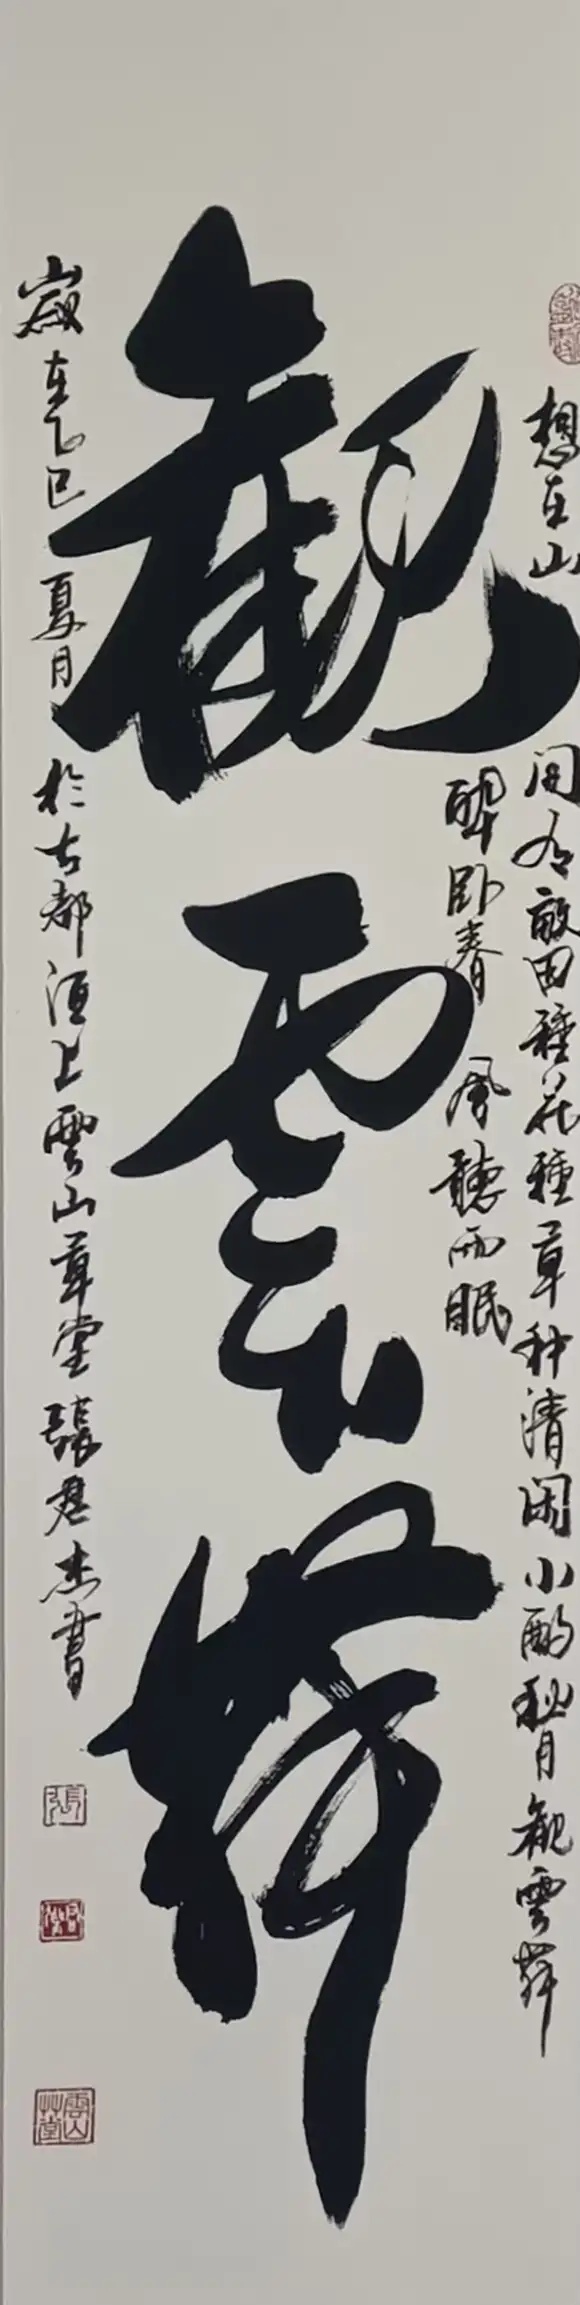 觀雲舞
想在山
間有畝田種花種草种清闲小酌秋月觀雲舞
醉卧春風聽雨眠
歲在乙巳夏月於古都洹上雲山草堂張君杰書
張
雲山草堂